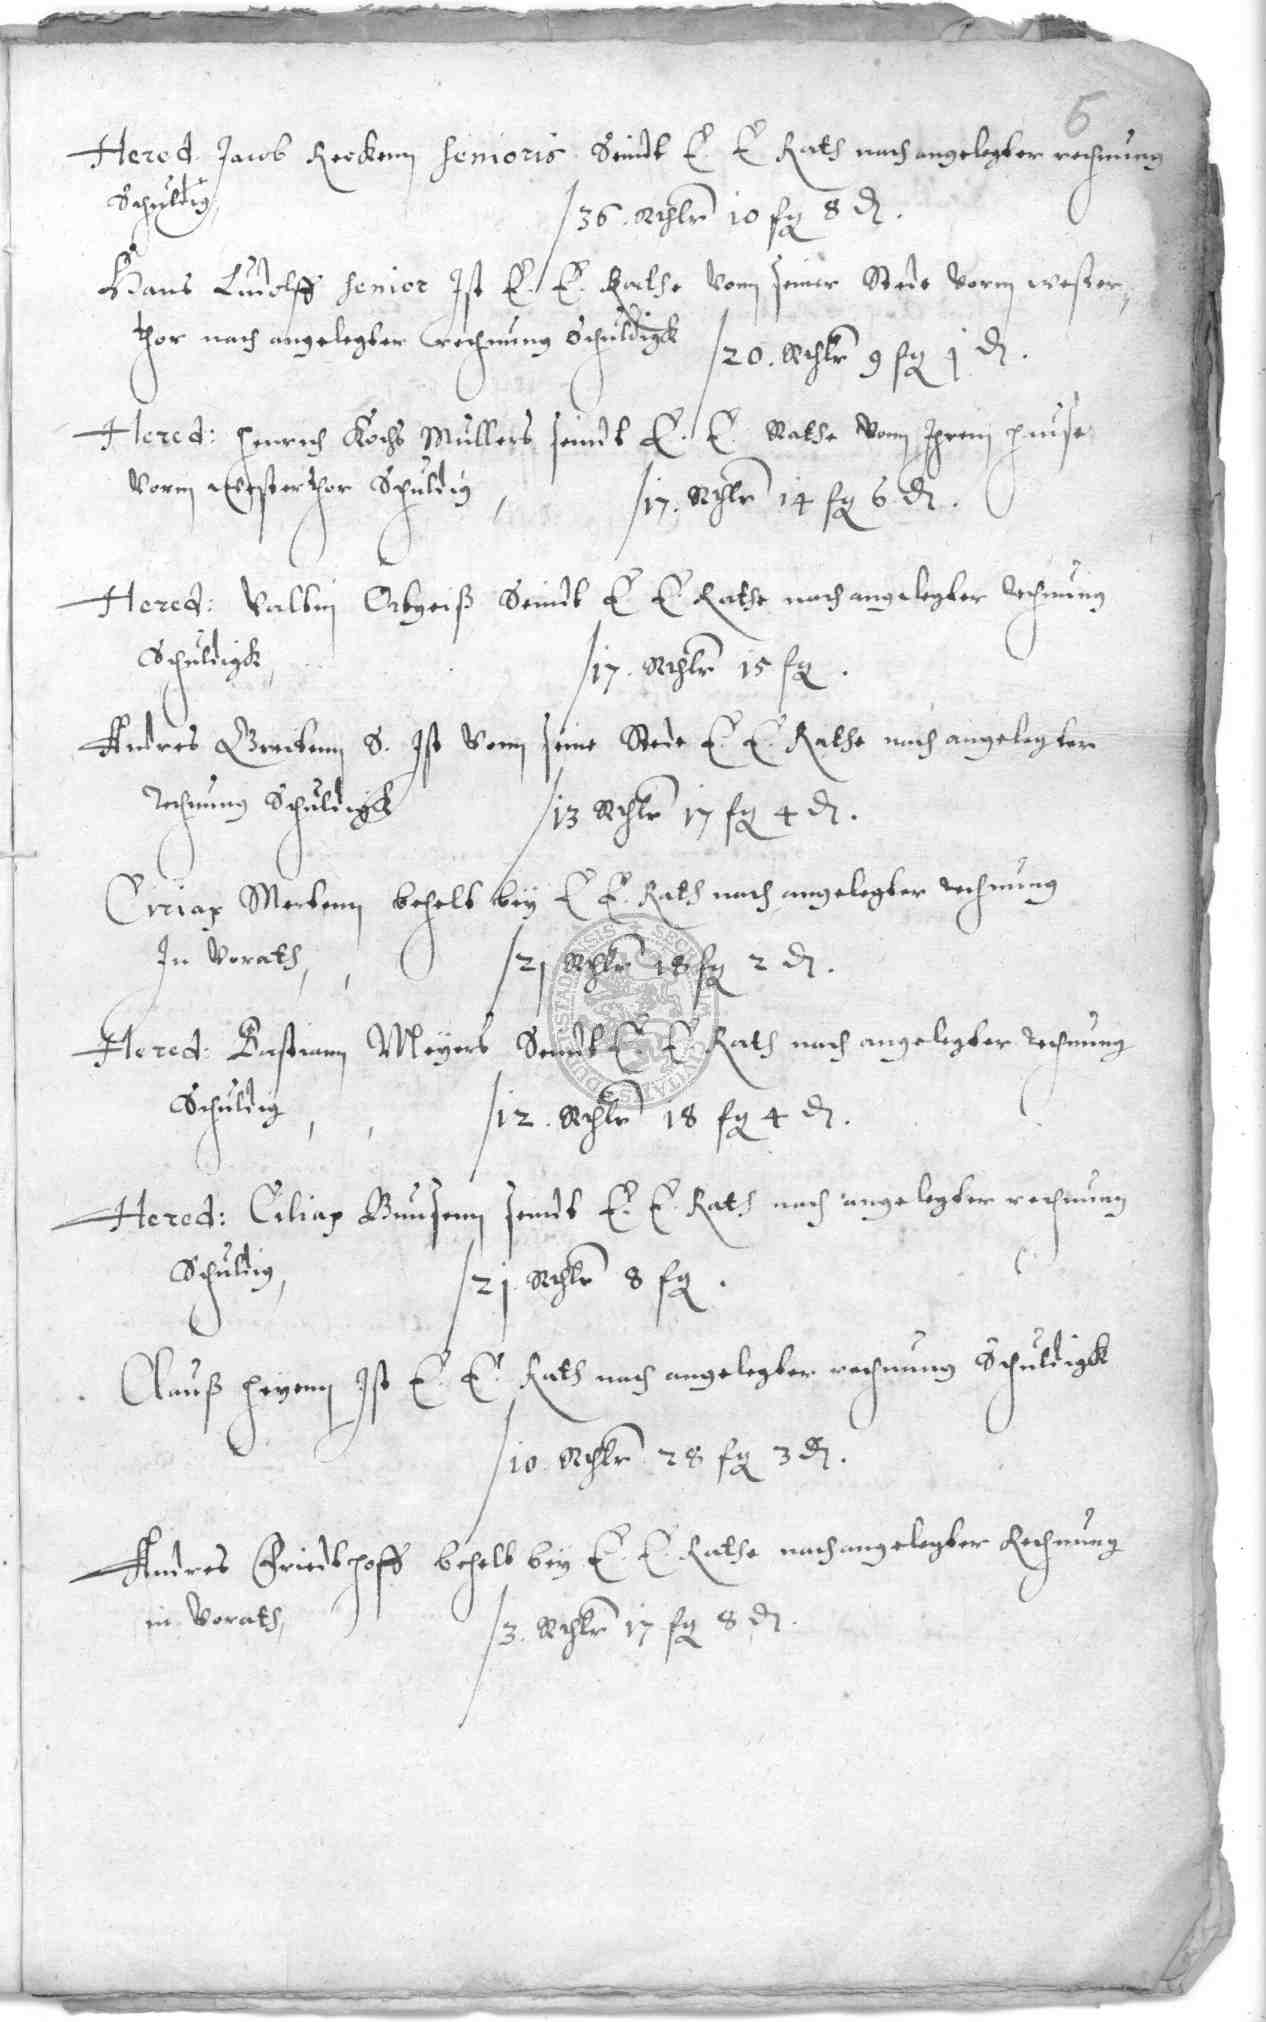 5
Hered. Jacob Reckenn senioris Seindt E. E. Rath nach angelegter rechnung
Schuldig, /36. Rthlr 10 fg 8 d.
Hans Ludolff senior Ist E. E. Rathe vonn seiner Stede vorm wester,,
thor nach angelegter rechnung Schuldigk /20. Rthlr 9 fg j d.
Hered: Henrich Kochs Mullers seindt E. E. Rathe vonn Ihrem Hause
vorm westerthor Schuldig, /17. Rthlr 14 fg 6 d.
Hered: Valtin Seindt E E Rathe nach angelegter Rechnung
Schuldigk, /17. Rthlr 15 fg.
Andres S. Ist vonn seine Stede E. E. Rathe nach angelegter
Rechnung Schuldigk /13 Rthlr 17 fg 4 d.
Ciriax Mertenn behelt bey E E. Rath nach angelegter Rechnung
In Vorath, , /2j Rthlr 18 fg 2 d.
Hered: Bastiann Meyers Seindt E. E Rath nach angelegter Rechnung
Schuldig, , /12. Rthlr 18 fg 4 d.
Hered: Ciliax seindt E. E. Rath nach angelegter rechnung
Schuldig, /2j. Rthlr 8 fg.
Clauß Heyenn Ist E. E. Rath nach angelegter rechnung Schuldigk
/10. Rthlr 28 fg 3 d.
Andres Friedthoff behelt bey E. E. Rathe nach angelegter Rechnung
in Vorath, /3. Rthlr 17 fg 8 d.